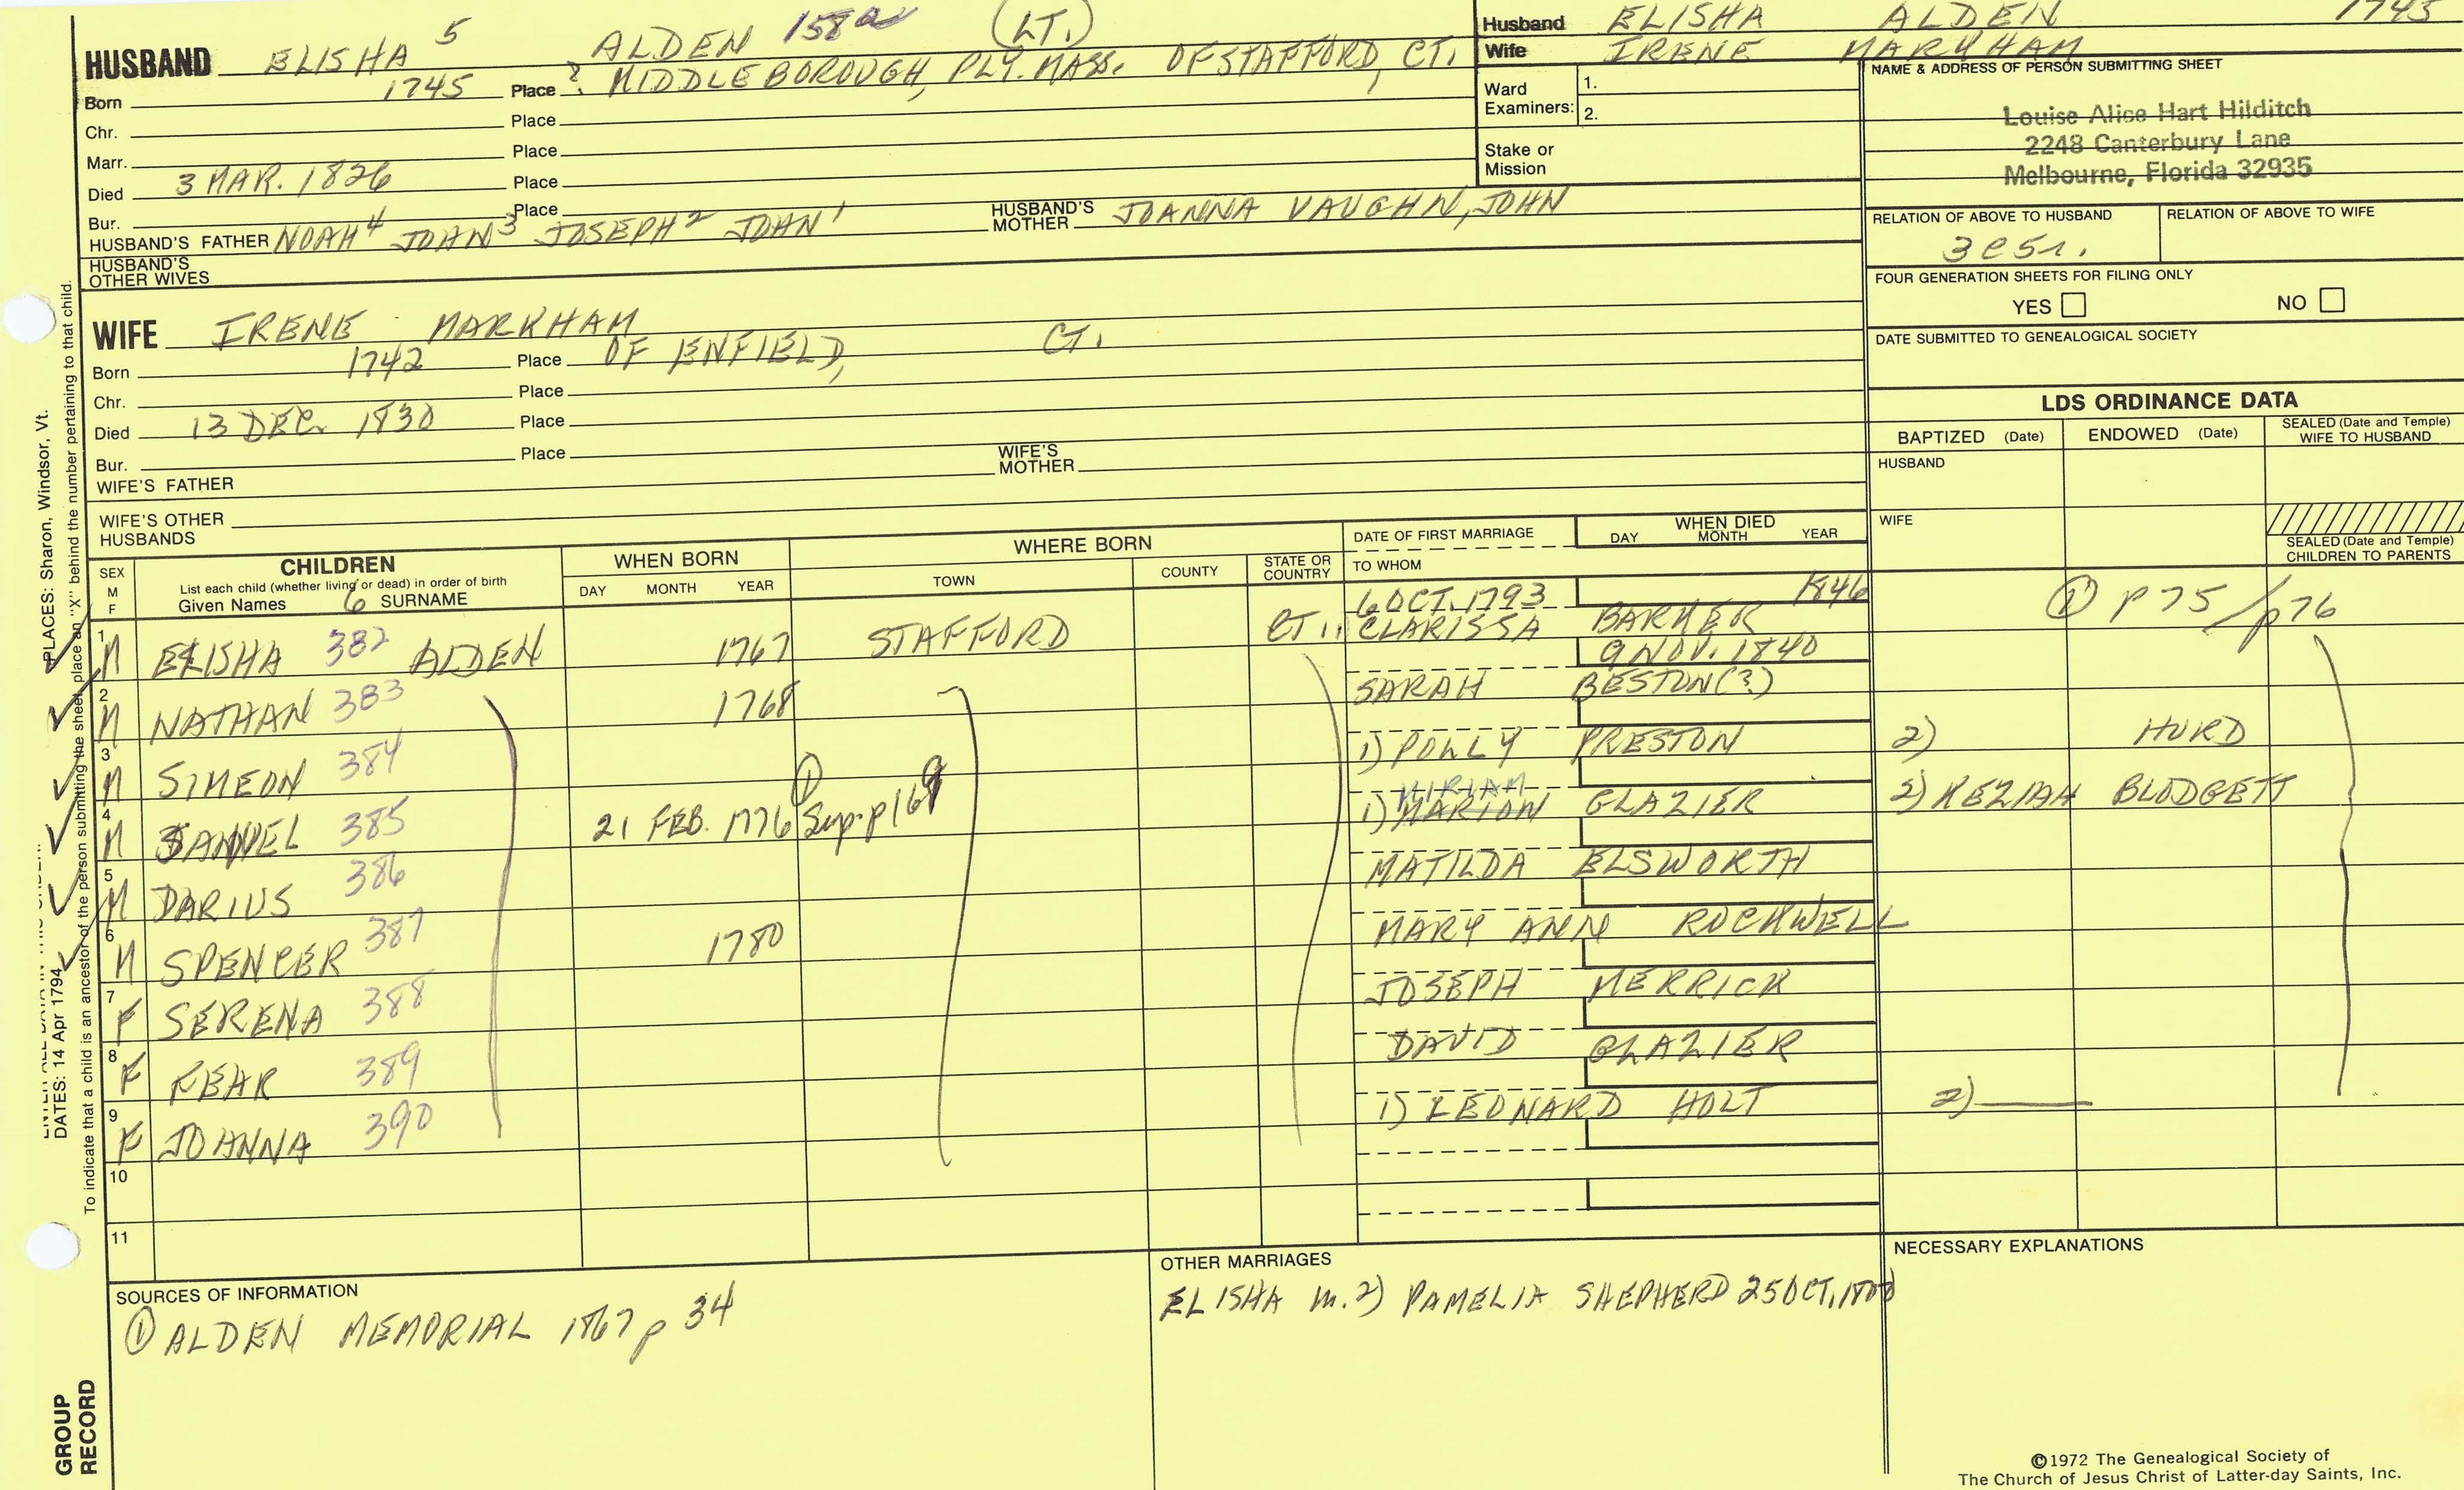 HUSBAND ELISHA 5 ALDEN 158a (LT.)
Born 1745 Place ? MIDDLEBOROUGH, PLY. MASS. OF STAFFORD, CT.
Chr. Place
Marr. Place
Died 3 MAR. 1826 Place
Bur. Place
HUSBAND'S FATHER NOAH 4 JOHN 3 JOSEPH 2 JOHN 1 HUSBAND'S MOTHER JOANNA VAUGHN, JOHN
HUSBAND'S OTHER WIVES
Husband ELISHA ALDEN 1745
Wife IRENE MARKHAM
Ward Examiners: 1.
2.
Stake or Mission
NAME & ADDRESS OF PERSON SUBMITTING SHEET
Louise Alice Hart Hilditch
2248 Canterbury Lane
Melbourne, Florida 32935
RELATION OF ABOVE TO HUSBAND RELATION OF ABOVE TO WIFE
3C5r.
FOUR GENERATION SHEETS FOR FILING ONLY
YES NO
DATE SUBMITTED TO GENEALOGICAL SOCIETY
WIFE IRENE MARKHAM
Born 1742 Place OF ENFIELD, CT.
Chr. Place
Died 13 DEC. 1830 Place
Bur. Place
WIFE'S FATHER WIFE'S MOTHER
WIFE'S OTHER HUSBANDS
LDS ORDINANCE DATA
BAPTIZED (Date) ENDOWED (Date) SEALED (Date and Temple) WIFE TO HUSBAND
HUSBAND
WIFE
SEALED (Date and Temple) CHILDREN TO PARENTS
SEX M F
CHILDREN
List each child (whether living or dead) in order of birth
Given Names 6 SURNAME
WHEN BORN
DAY MONTH YEAR
WHERE BORN
TOWN COUNTY STATE OR COUNTRY
DATE OF FIRST MARRIAGE
TO WHOM
WHEN DIED
DAY MONTH YEAR
1 M ELISHA 382 ALDEN 1767 STAFFORD CT. 6 OCT. 1793 1846
CLARISSA BARKER ① p 75 / p76
2 M NATHAN 383 1768 9 NOV. 1840
SARAH BESTON(?)
3 M SIMEON 384 1) POLLY PRESTON 2) HURD
4 M SAMUEL 385 21 FEB. 1776 ① Sup. p 169 MIRIAM
1) MARION GLAZIER 2) KEZIAH BLODGETT
5 M DARIUS 386 MATILDA ELSWORTH
6 M SPENCER 387 1780 MARY ANN ROCKWELL
7 F SERENA 388 JOSEPH MERRICK
8 F FEAR 389 DAVID GLAZIER
9 F JOANNA 390 1) LEONARD HOLT 2)
10
11
SOURCES OF INFORMATION
① ALDEN MEMORIAL 1867 p 34
OTHER MARRIAGES
ELISHA m. 2) PAMELIA SHEPHERD 25 OCT.
NECESSARY EXPLANATIONS
PLACES: Sharon, Windsor, Vt.
DATES: 14 Apr 1794
To indicate that a child is an ancestor of the person submitting the sheet, place an "X" behind the number pertaining to that child.
GROUP RECORD
©1972 The Genealogical Society of
The Church of Jesus Christ of Latter-day Saints, Inc.